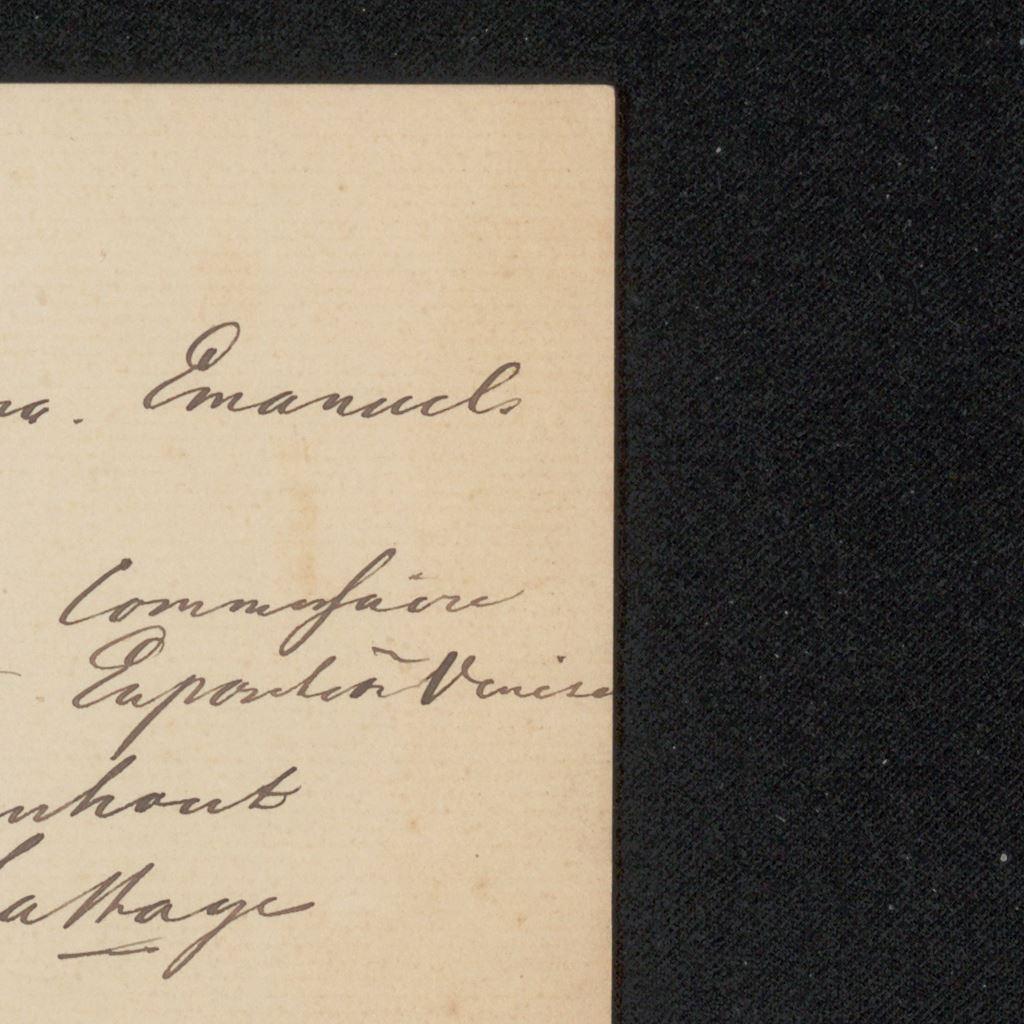 na. Emanuels
Commissaire
Exposition Venise
nhout
La Haye